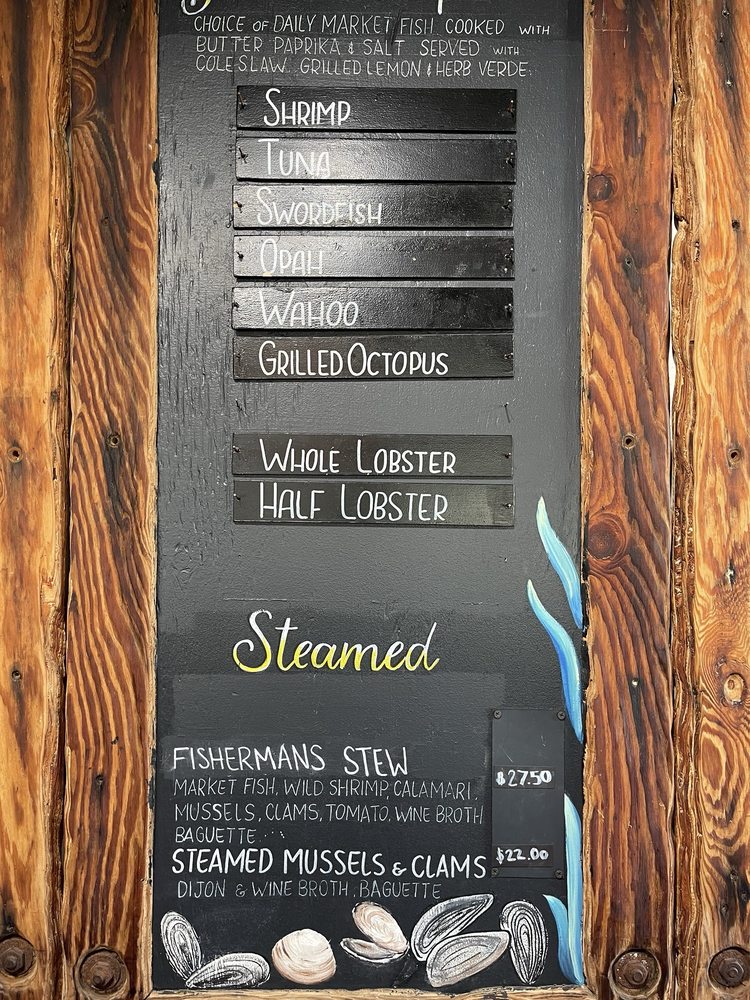 CHOICE OF DAILY MARKET FISH COOKED WITH
BUTTER PAPRIKA & SALT SERVED WITH
COLESLAW. GRILLED LEMON & HERB VERDE:
SHRIMP
TUNA
SWORDFISH
OPAH
WAHOO
GRILLED OCTOPUS
WHOLE LOBSTER
HALF LOBSTER
Steamed
FISHERMANS STEW
$27.50
MARKET FISH, WILD SHRIMP, CALAMARI,
MUSSELS, CLAMS, TOMATO, WINE BROTH
BAGUETTE...
STEAMED MUSSELS & CLAMS
$22.00
DIJON & WINE BROTH, BAGUETTE